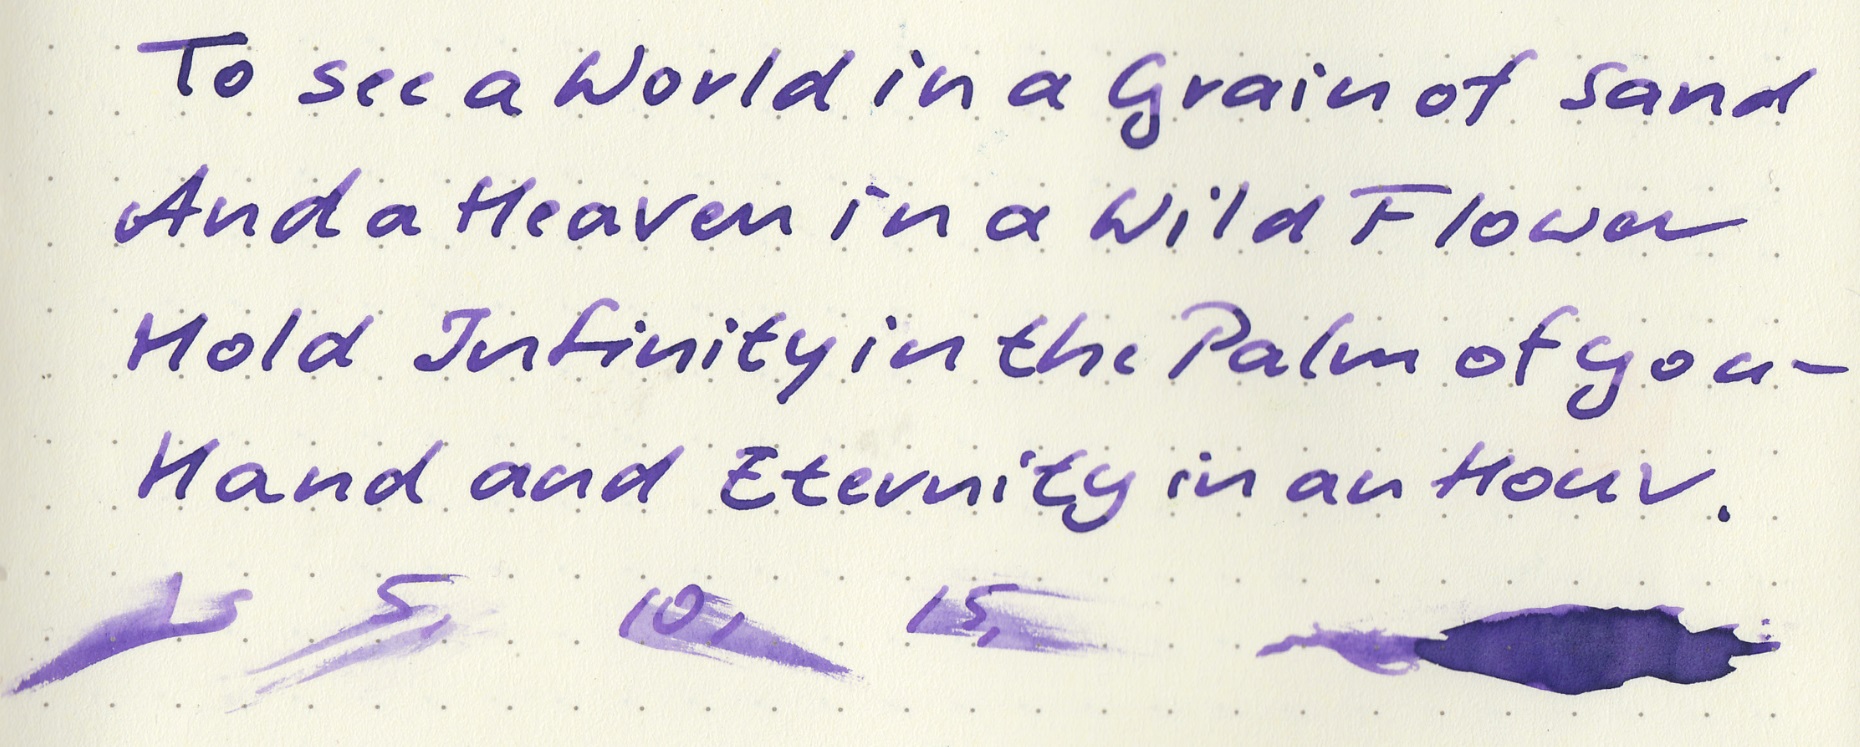 To see a World in a Grain of Sand
And a Heaven in a Wild Flower
Hold Infinity in the Palm of your
Hand and Eternity in an Hour.
1s 5, 10, 15,